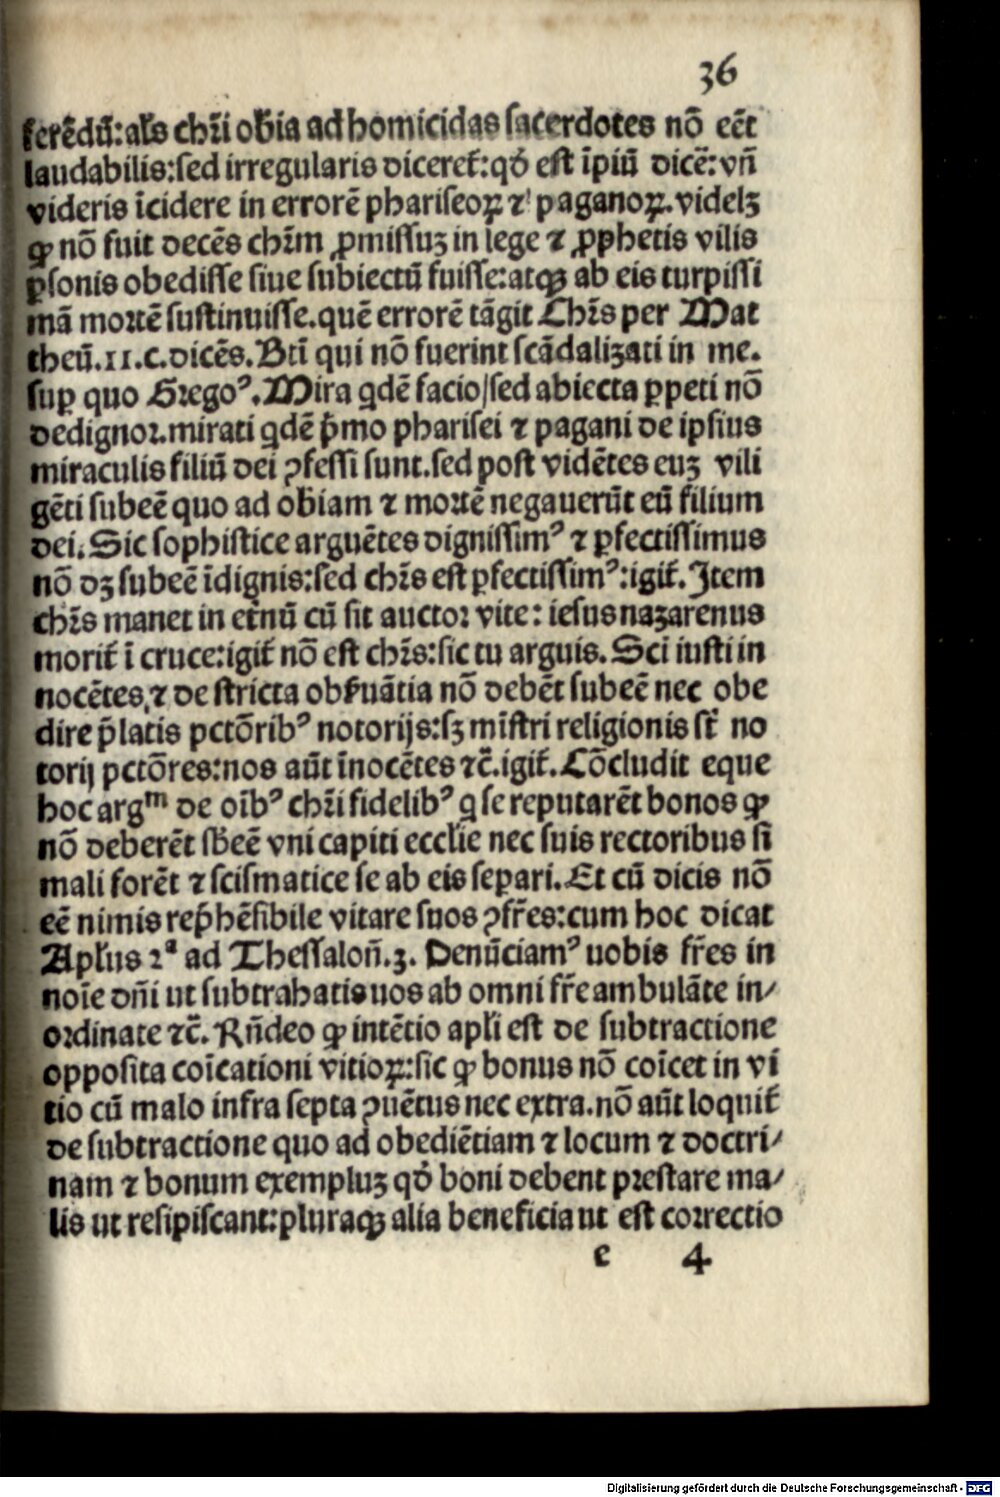 36
ferēdū:als chr̄i ob̄ia ad homicidas sacerdotes nō eēt
laudabilis:sed irregularis diceret᷑:qđ est īpiū dicē:vñ
videris īcidere in errorē phariseoꝝ ⁊ paganoꝝ.videlꝫ
ꝙ nō fuit decēs chr̄m ꝓmissuꝫ in lege ⁊ ꝓphetis vilis
ꝑsonis obedisse siue subiectū fuisse:atqꝫ ab eis turpissi
mā mortē sustinuisse.quē errorē tāgit Chr̄s per Mat
theū.11.c.dicēs.Btī qui nō fuerint scādaliꝫati in me.
suꝑ quo Gregoꝰ.Mira qdē facio/sed abiecta ꝑpeti nō
dedignor.mirati qdē p̄mo pharisei ⁊ pagani de ipsius
miraculis filiū dei ꝯfessi sunt.sed post vidētes euꝫ vili
gēti subeē quo ad ob̄iam ⁊ mortē negauerūt eū filium
dei.Sic sophistice arguētes dignissimꝰ ⁊ ꝑfectissimus
nō dꝫ subeē īdignis:sed chr̄s est ꝑfectissimꝰ:igit᷑.Item
chr̄s manet in et̄nū cū sit auctor vite: iesus naꝫarenus
morit᷑ ī cruce:igit᷑ nō est chr̄s:sic tu arguis.Sci iusti in
nocētes,⁊ de stricta obẜuātia nō debēt subeē nec obe
dire p̄latis pctōribꝰ notorijs:sꝫ mīstri religionis st̄ no
torij pctōres:nos aūt īnocētes ⁊c̄.igit᷑.Cōcludit eque
hoc argᵐ de oībꝰ chr̄i fidelibꝰ q se reputarēt bonos ꝙ
nō deberēt sb̄eē vni capiti ecclīe nec suis rectoribus si
mali forēt ⁊ scismatice se ab eis seꝑari.Et cū dicis nō
eē nimis rep̄hēsibile vitare suos ꝯfr̄es:cum hoc dicat
Apl̄us 2ᵃ ad Thessaloñ.3. Denūciamꝰ uobis fr̄es in
noīe dñi ut subtrahatis uos ab omni fr̄e ambulāte in/
ordinate ⁊c̄. Rñdeo ꝙ intētio apl̄i est de subtractione
opposita coīcationi vitioꝝ:sic ꝙ bonus nō coīcet in vi
tio cū malo infra septa ꝯuētus nec extra.nō aūt loquit᷑
de subtractione quo ad obediētiam ⁊ locum ⁊ doctri/
nam ⁊ bonum exempluꝫ qđ boni debent prestare ma/
lis ut resipiscant:pluraqꝫ alia beneficia ut est correctio
e 4
Digitalisierung gefördert durch die Deutsche Forschungsgemeinschaft - DFG